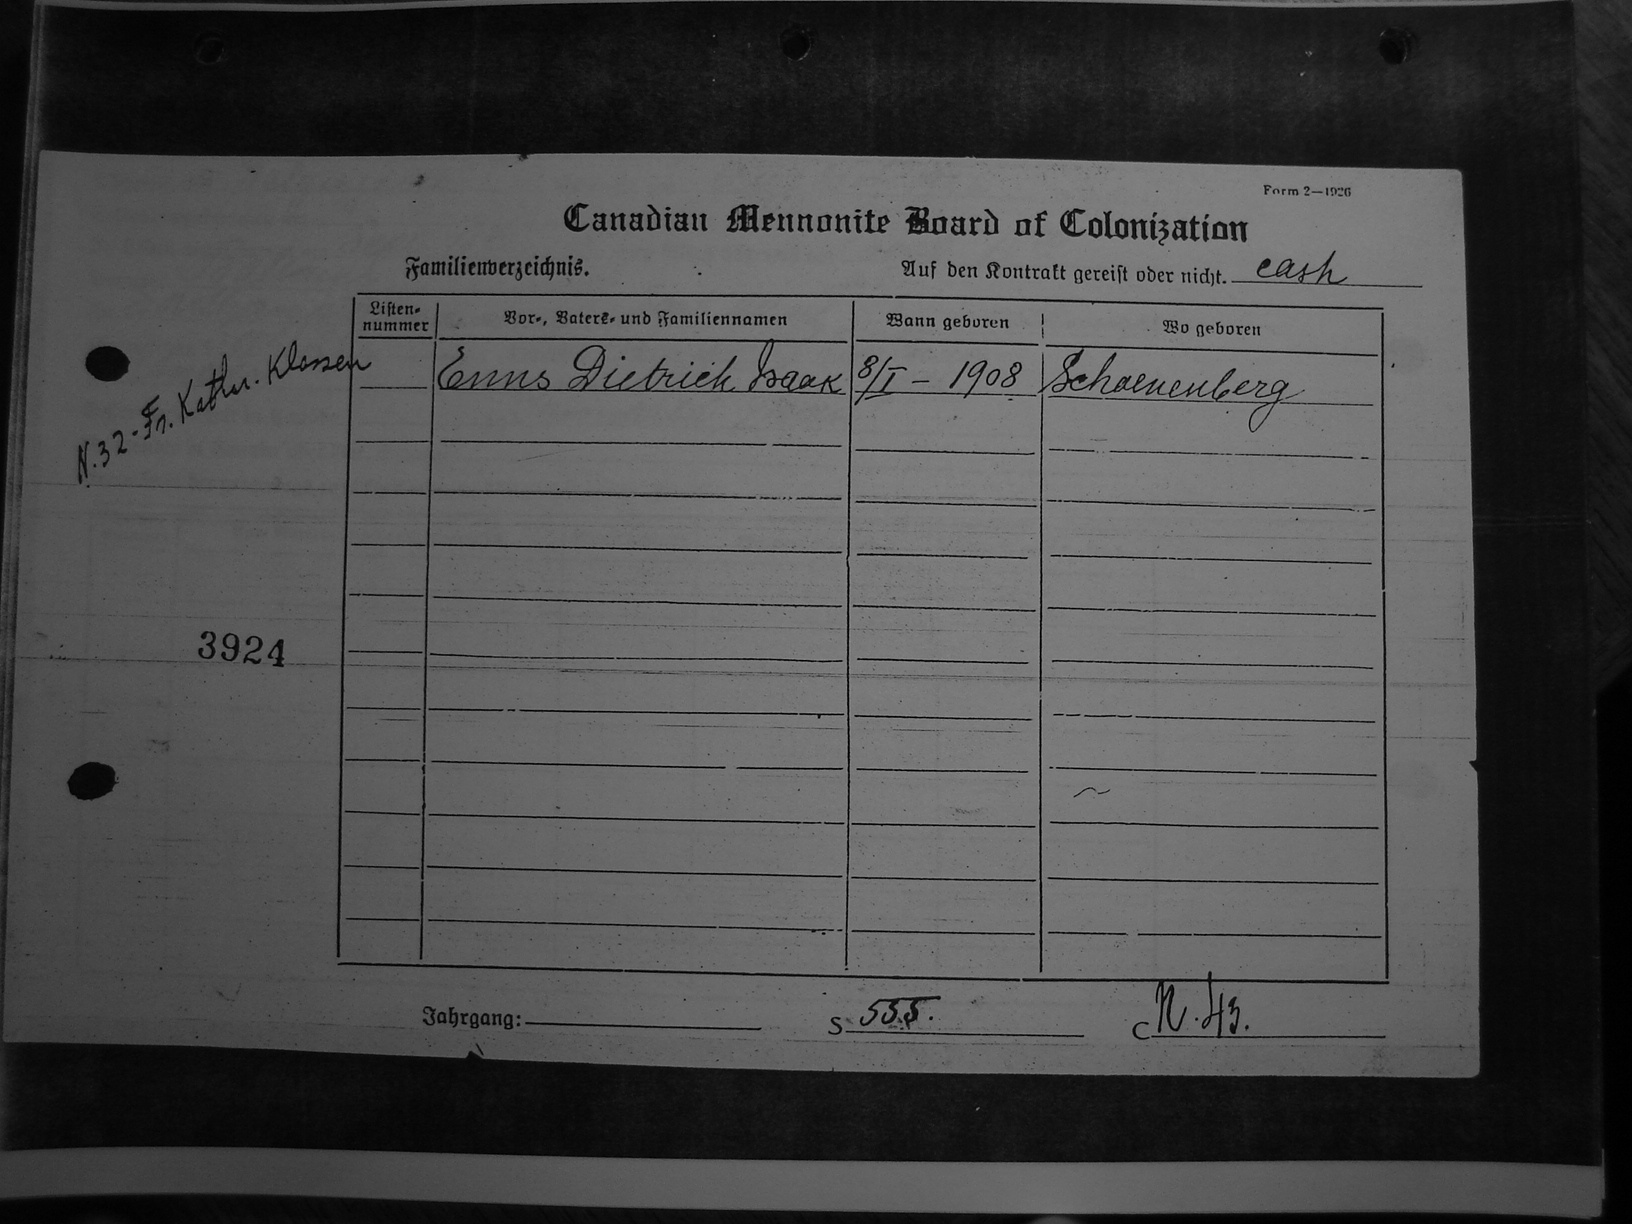 Form 2—1926
Canadian Mennonite Board of Colonization
Familienverzeichnis.
Auf den Kontrakt gereist oder nicht. cash
Listen-
nummer
Vor-, Vaters- und Familiennamen
Wann geboren
Wo geboren
N.32-Fr. Kathar. Klassen
Enns Dietrich Isaak 8/I - 1908 Schoenenberg
3924
Jahrgang:
S 555.
C N. 43.